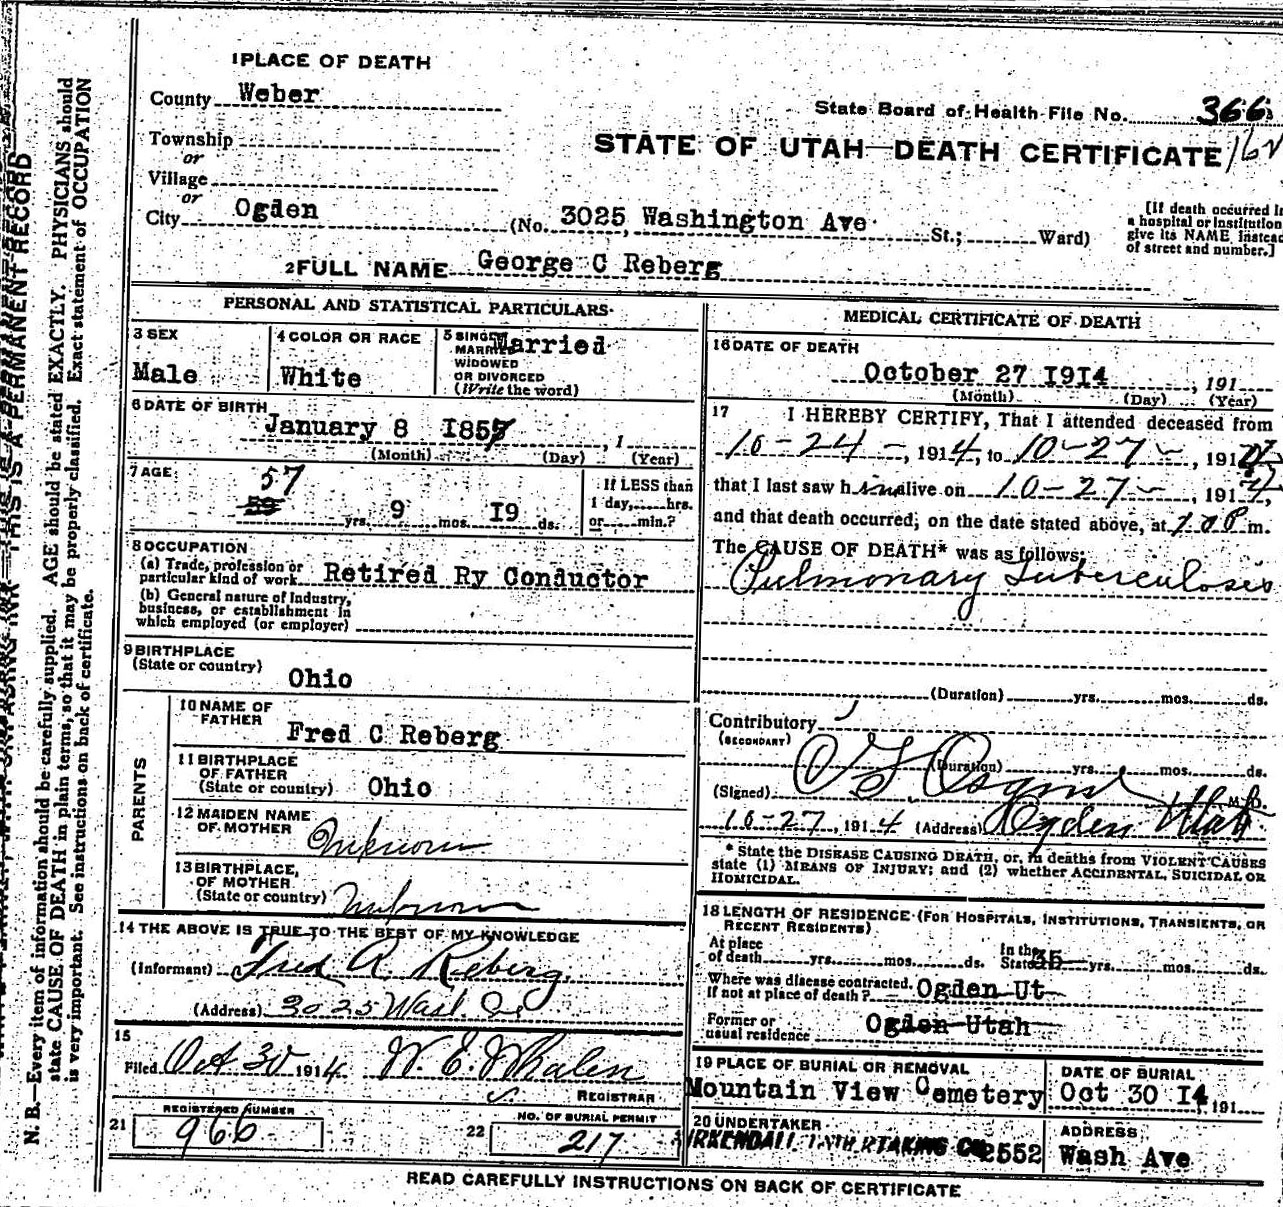 1 PLACE OF DEATH
County Weber
State Board of Health File No. 366
Township
or
STATE OF UTAH—DEATH CERTIFICATE
Village
or
City Ogden (No. 3025 Washington Ave St.; Ward)
[If death occurred in a hospital or institution give its NAME instead of street and number.]
2 FULL NAME George C Reberg
PERSONAL AND STATISTICAL PARTICULARS
3 SEX
Male
4 COLOR OR RACE
White
5 SINGLE
MARRIED
WIDOWED
OR DIVORCED
(Write the word)
Married
6 DATE OF BIRTH
January 8 1857, 1
(Month) (Day) (Year)
7 AGE
57
yrs. 9 mos. 19 ds.
If LESS than
1 day, hrs.
or min.?
8 OCCUPATION
(a) Trade, profession or
particular kind of work Retired Ry Conductor
(b) General nature of Industry,
business, or establishment in
which employed (or employer)
9 BIRTHPLACE
(State or country)
Ohio
PARENTS
10 NAME OF
FATHER
Fred C Reberg
11 BIRTHPLACE
OF FATHER
(State or country) Ohio
12 MAIDEN NAME
OF MOTHER
Unknown
13 BIRTHPLACE,
OF MOTHER
(State or country) Unknown
14 THE ABOVE IS TRUE TO THE BEST OF MY KNOWLEDGE
(Informant) Fred A Reberg.
(Address) 3025 Wash
15
Filed Oct 30 1914 W. E. Whalen
REGISTRAR
21
REGISTERED NUMBER
966
22
NO. OF BURIAL PERMIT
217
MEDICAL CERTIFICATE OF DEATH
16 DATE OF DEATH
October 27 1914, 191
(Month) (Day) (Year)
17 I HEREBY CERTIFY, That I attended deceased from
10-24-, 1914, to 10-27-, 1914
that I last saw him alive on 10-27-, 1914,
and that death occurred, on the date stated above, at m.
The CAUSE OF DEATH* was as follows:
Pulmonary Tuberculosis
(Duration) yrs. mos. ds.
Contributory
(SECONDARY)
(Duration) yrs. mos. ds.
(Signed) M.D.
10-27, 1914 (Address) Ogden Utah
* State the DISEASE CAUSING DEATH, or, in deaths from VIOLENT CAUSES
state (1) MEANS OF INJURY; and (2) whether ACCIDENTAL, SUICIDAL OR
HOMICIDAL.
18 LENGTH OF RESIDENCE (FOR HOSPITALS, INSTITUTIONS, TRANSIENTS, OR
RECENT RESIDENTS)
At place
of death yrs. mos. ds.
In the
State 35 yrs. mos. ds.
Where was disease contracted,
if not at place of death? Ogden Ut
Former or
usual residence Ogden Utah
19 PLACE OF BURIAL OR REMOVAL
Mountain View Cemetery
DATE OF BURIAL
Oct 30 14, 191
20 UNDERTAKER
2552
ADDRESS
Wash Ave
READ CAREFULLY INSTRUCTIONS ON BACK OF CERTIFICATE
THIS IS A PERMANENT RECORD
N. B.—Every item of information should be carefully supplied. AGE should be stated EXACTLY. PHYSICIANS should
state CAUSE OF DEATH in plain terms, so that it may be properly classified. Exact statement of OCCUPATION
is very important. See instructions on back of certificate.